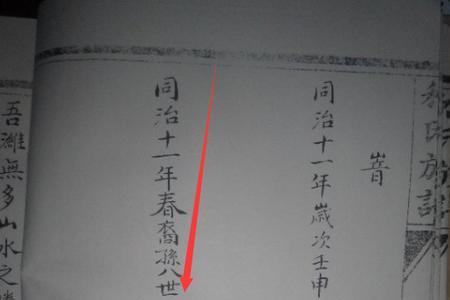 氏族譜
嵛
同治十一年歲次壬申
同治十一年春裔孫八世
吾濰無多山水之